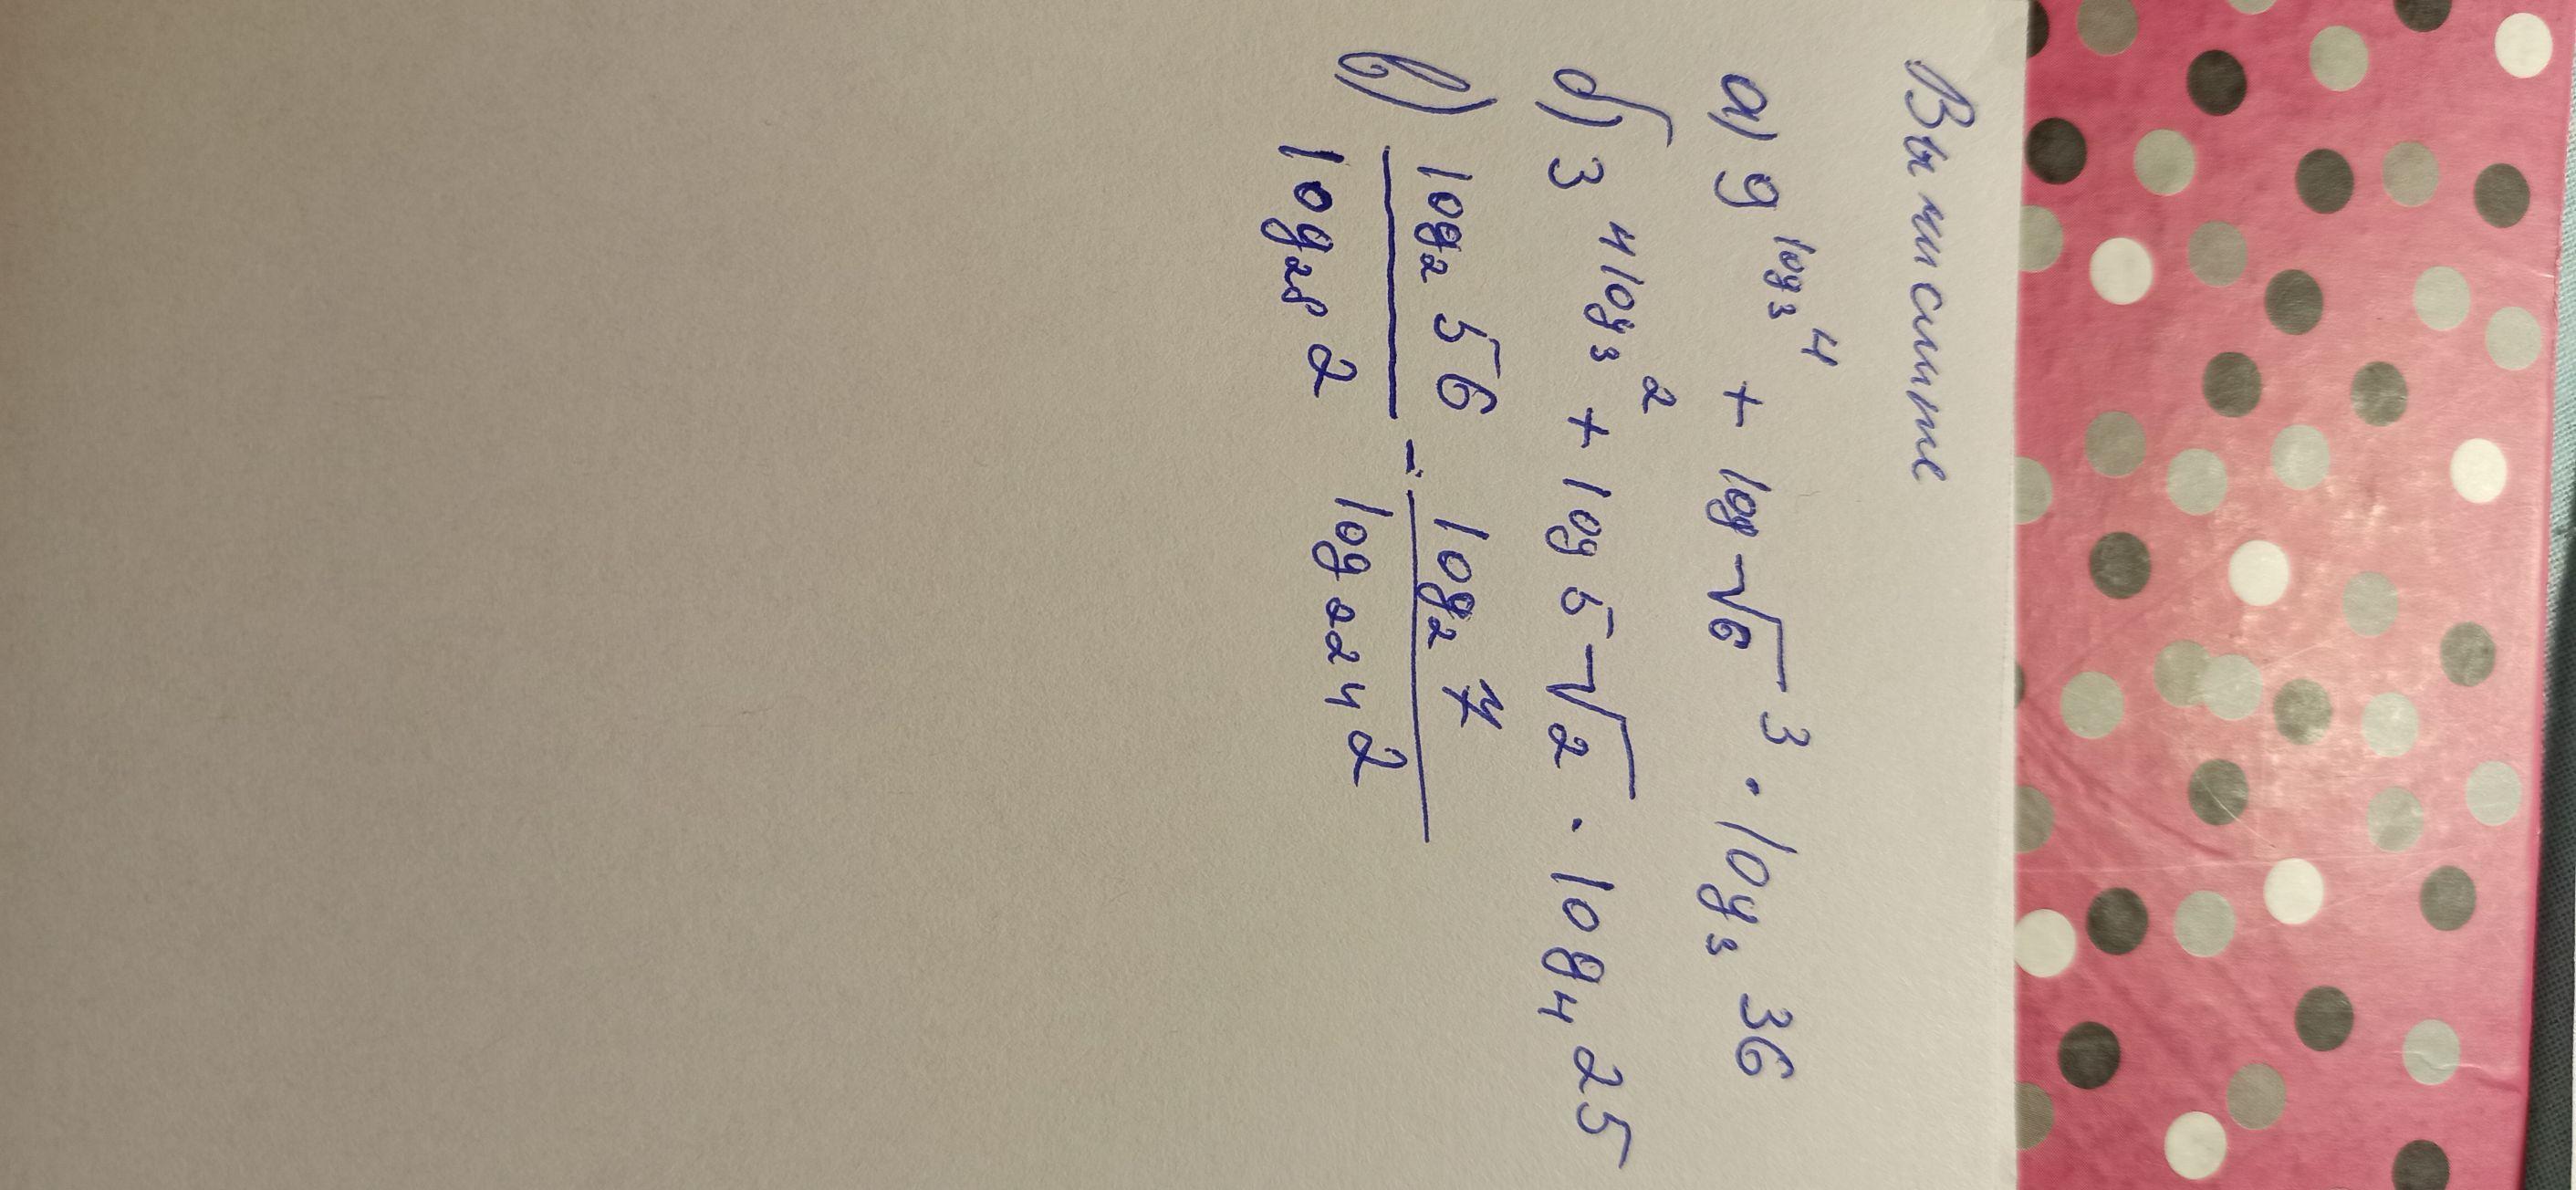 Вычислите
а) 9^{log_3 4} + log_{√6} 3 · log_3 36
б) 3^{4 log_3 2} + log 5 √2 · log_4 25
в) \frac{log_2 56}{log_{28} 2} - \frac{log_2 7}{log_{224} 2}